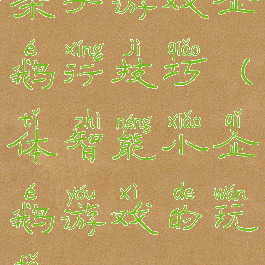 子游戏企
é xíng jì qiǎo
鹅行技巧（
tǐ zhì néng xiǎo qǐ
体智能小企
é yóu xì de wán
鹅游戏的玩